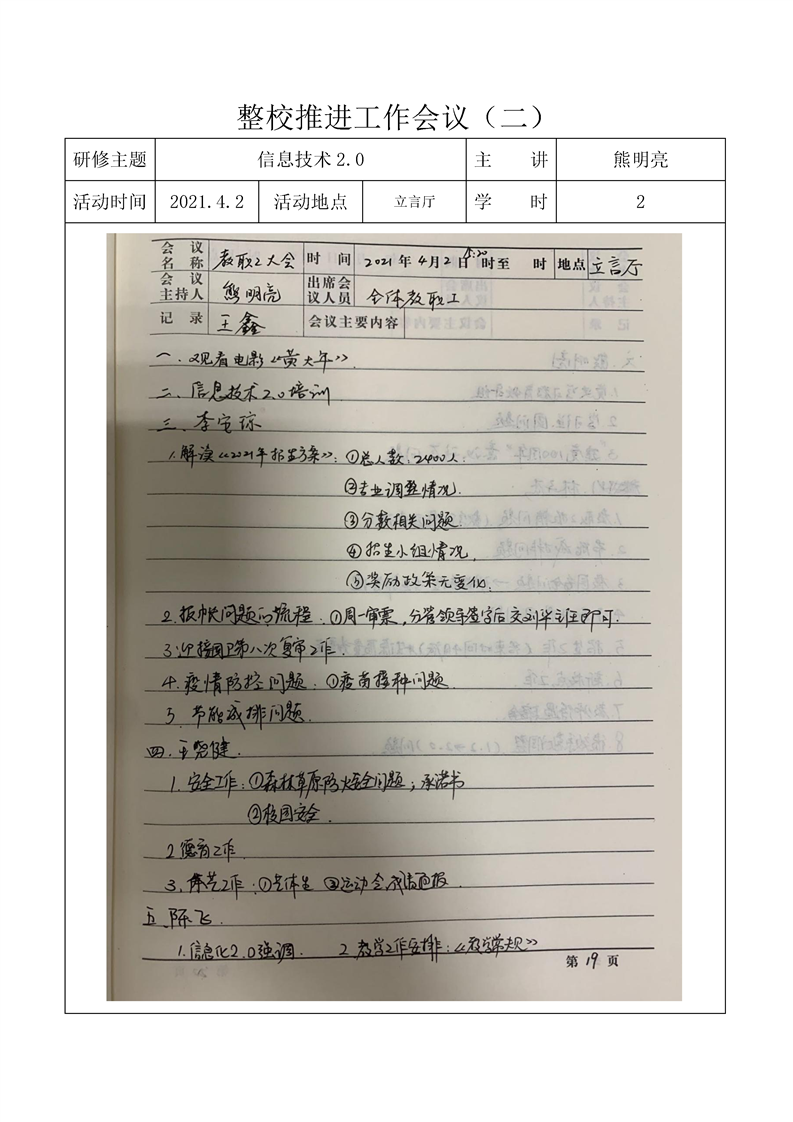 整校推进工作会议（二）
研修主题 信息技术 2.0 主 讲 熊明亮
活动时间 2021.4.2 活动地点 立言厅 学 时 2
会议名称 教职工大会 时间 2021年4月2日 时至 时 地点 立言厅
会议主持人 熊明亮 出席会议人员 全体教职工
记录 王鑫 会议主要内容
一.观看电影《黄大年》.
二、信息技术2.0培训
三、李宝琼
1.解读《2021年招生方案》:①总人数:2400人;
②专业调整情况.
③分数相关问题.
④招生小组情况,
⑤奖励政策无变化.
2.报帐问题的流程.①周一审票,分管领导签字后交刘华主任即可.
3.迎接国卫第八次复审工作.
4.疫情防控问题:①疫苗接种问题.
5.节能减排问题.
四.王晓健.
1.安全工作:①森林草原防火安全问题;承诺书
②校园安全.
2德育工作.
3.体艺工作:①艺体生 ②运动会
五.陈飞.
1.信息化2.0强调. 2.教学工作安排:《教学常规》
第19页